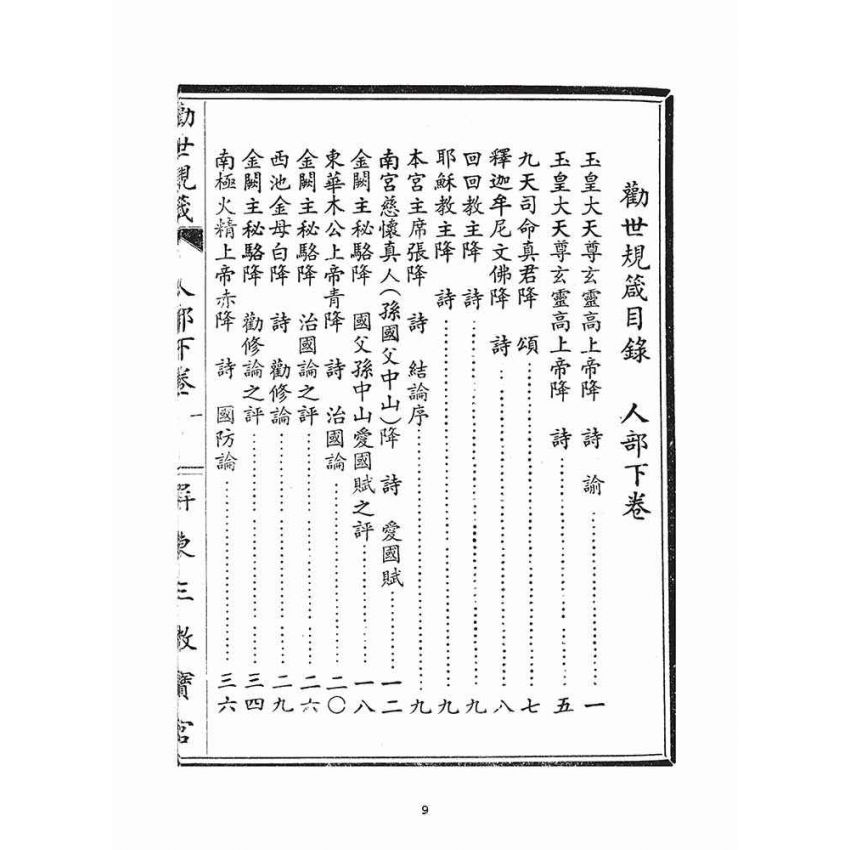 勸世規箴目錄　人部下卷
玉皇大天尊玄靈高上帝降　詩　諭…………一
玉皇大天尊玄靈高上帝降　詩…………五
九天司命真君降　頌…………七
釋迦牟尼文佛降　詩…………八
回回教主降　詩…………九
耶穌教主降　詩…………九
本宮主席張降　詩　結論序…………九
南宮慈懷真人(孫國父中山)降　詩　愛國賦…………一二
金闕主秘駱降　國父孫中山愛國賦之評…………一八
東華木公上帝青降　詩　治國論…………二〇
金闕主秘駱降　治國論之評…………二六
西池金母白降　詩　勸修論…………二九
金闕主秘駱降　勸修論之評…………三四
南極火精上帝赤降　詩　國防論…………三六
勸世規箴　人部下卷　一　屏東三教寶宮
9